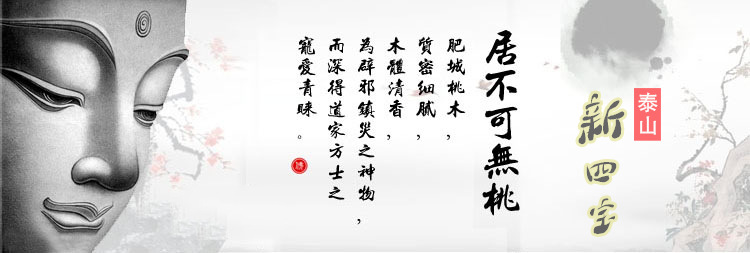 泰山
新四宝
居不可無桃
肥城桃木,
質密细腻,
木體清香,
為辟邪鎮災之神物,
而深得道家方士之
寵愛青睐。